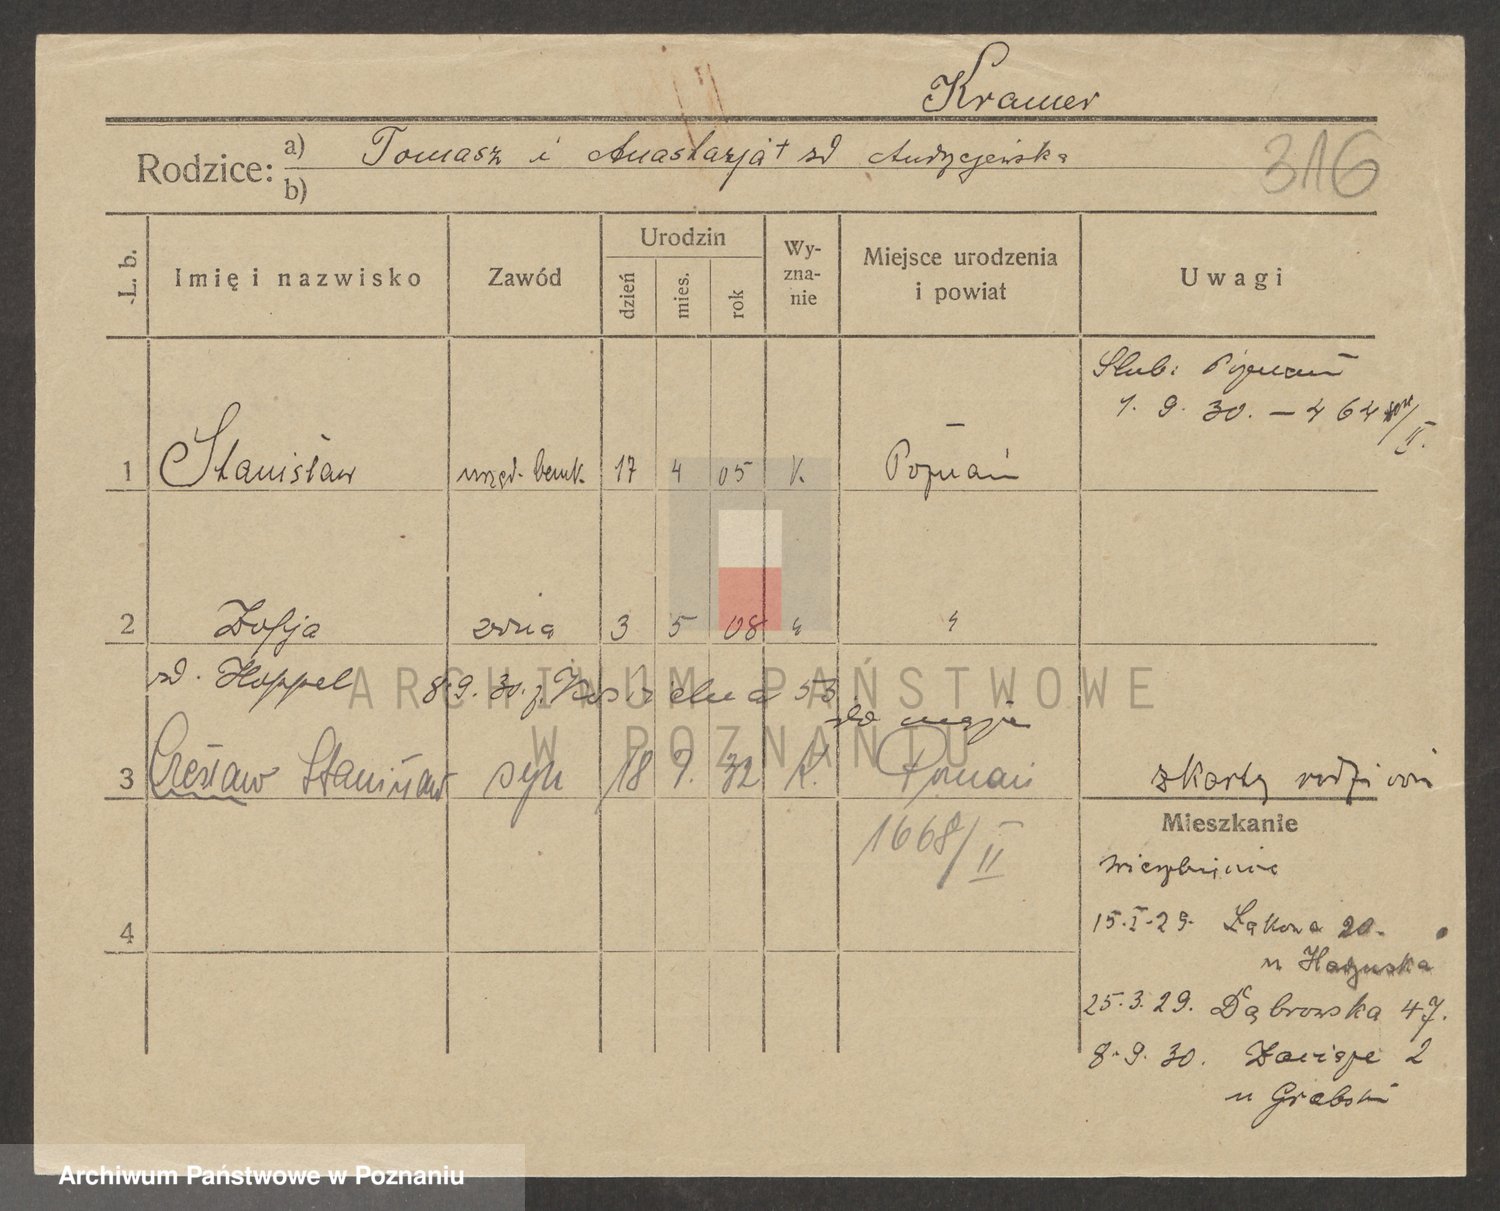 Kramer
Rodzice: a) Tomasz i Anastazja + zd Andrzejewska
b)
316
L. b. Imię i nazwisko Zawód Urodzin dzień mies. rok Wy-zna-nie Miejsce urodzenia i powiat Uwagi
Ślub: Poznań
1. 9. 30. – 464 / II.
1 Stanisław urzęd. bank. 17 4 05 K. Poznań
2 Zofja żona 3 5 08 " "
zd. Hoppel 8.9.30. z Kościelna 53
do męża
3 Czesław Stanisław syn 18 9. 32 K. Poznań z karty rodziców
1668/II
Mieszkanie
4
15.I.29. Łąkowa 20.
u
25.3.29. Dąbrowska 47.
8.9.30. Zacisze 2
u Grabski
ARCHIWUM PAŃSTWOWE
W POZNANIU
Archiwum Państwowe w Poznaniu